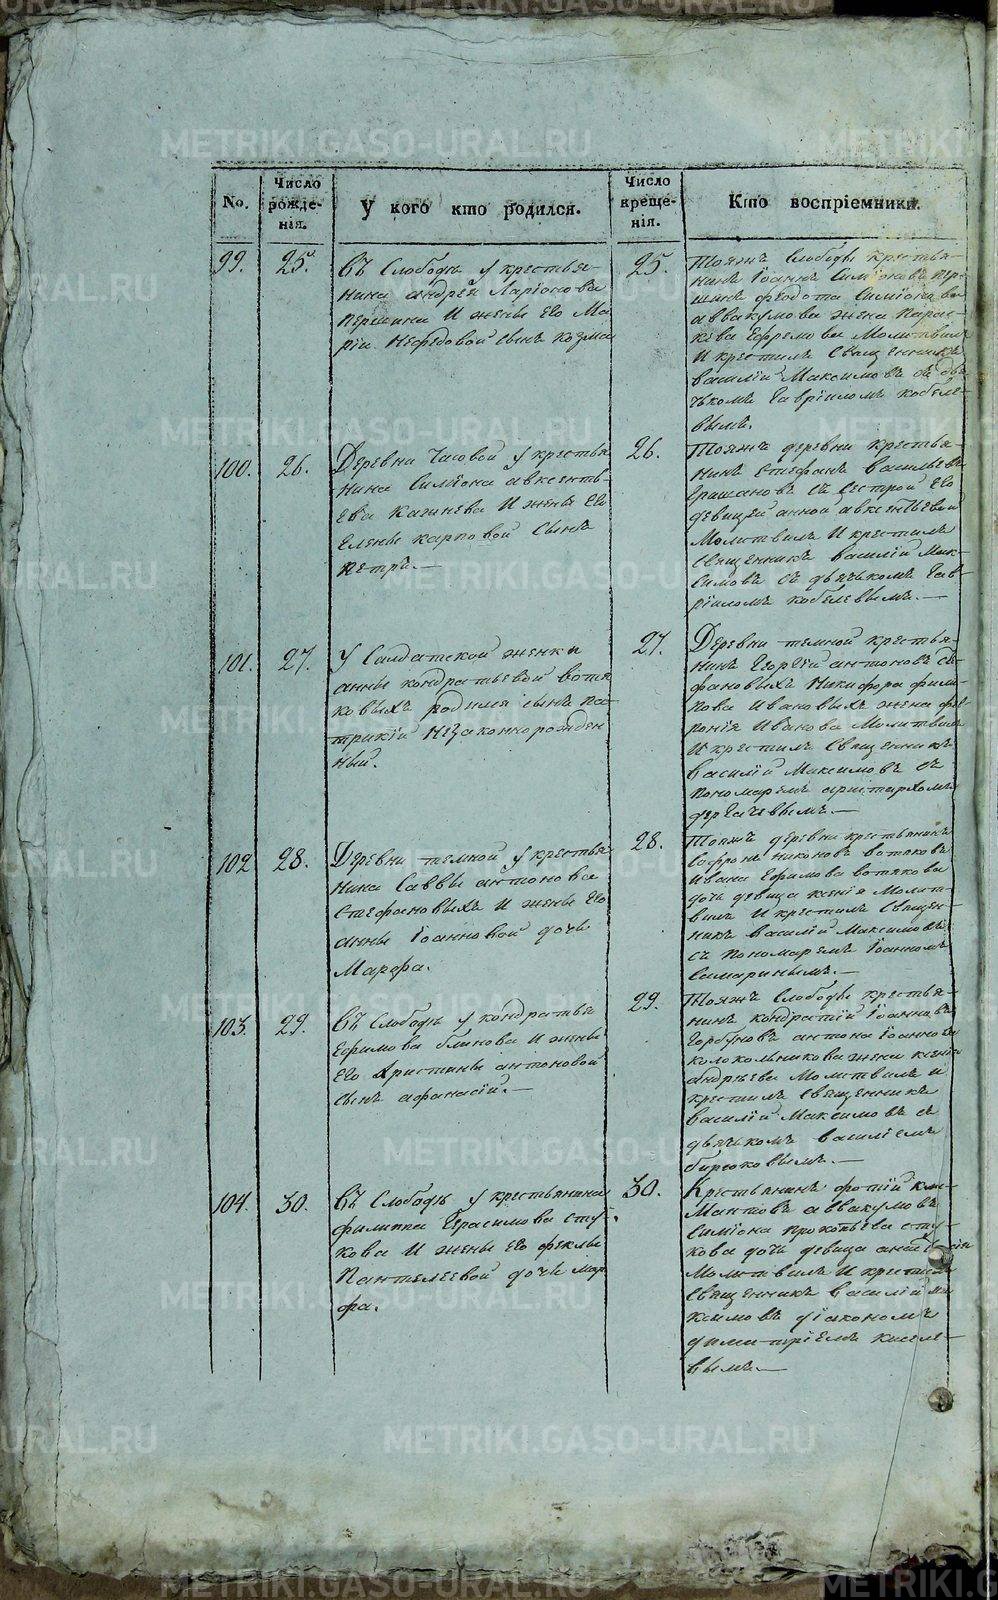 No.
Число рожде-нія.
У кого кто родился.
Число креще-нія.
Кто воспріемники.
99.
25.
Въ Слободѣ у крестья-
нина андрея Ларіонова
першина И жены Его Ма
ріи Нефедовой сынъ козма
25.
Тояжъ Слободы крестья-
нинъ Іоаннъ Симіоновъ пер
шинъ федота Симіонова
аввакумова жена Парас-
кева Ефремова Молитвилъ
И крестилъ Священникъ
василій Максимовъ съ дья
чькомъ Гавріиломъ кобеле-
вымъ.
100.
26.
Деревни Часовой у крестья
нина Симіона авксенть-
Ева Качнева И жены Его
Елены карповой Сынъ
петръ.—
26.
Тояжъ деревни крестья-
нинъ Стефанъ васильевъ
съ Сестрой Его
девицей анной авксентьевой
Молитвилъ И крестилъ
Священникъ василій Мак-
симовъ съ дьячькомъ Гав-
ріиломъ кобелевымъ.—
101.
27.
У Салдатской женки
анны кондратьевой вотя
ковыхъ родился сынъ па-
трикій Незаконнорожден
ный.
27.
Деревни темной крестья-
нинъ Георгій антоновъ Сте
фановыхъ Никифора фили-
пова Ивановыхъ жена фев
ронія Иванова Молитвилъ
И крестилъ Священникъ
василій Максимовъ съ
пономаремъ аристархомъ
дергачевымъ.—
102
28.
Деревни темной у крестья
нина Саввы антонова
Стефановыхъ И жены Его
анны Іоанновой дочь
Марфа.
28.
Тояжъ деревни крестьянинъ
Софронъ никоновъ вотяковъ
Ивана Ефимова вотякова
дочь девица ксенія Молит-
вилъ И крестилъ Священ-
никъ василій Максимовъ
съ пономаремъ Іоанномъ
Самаринымъ.—
103.
29.
Въ Слободѣ у кондратья
Ефимова блинова И жены
Его Христины антоновой
Сынъ афанасій.—
29.
Тояжъ Слободы крестья-
нинъ кондратій Іоанновъ
Горбуновъ антона Іоаннова
колокольникова жена ксенія
андреева Молитвилъ и
крестилъ Священникъ
василій Максимовъ съ
дьячькомъ василіемъ
бирюковымъ.—
104.
30.
Въ Слободѣ у крестьянина
филипа Герасимова сту
кова И жены Его феклы
Пантелеевой дочь мар
фа.
30.
Крестьянинъ фотій кли-
Мантовъ аввакумовъ
Симіона Прокопьева сту
кова дочь девица анастасія
Молитвилъ И крестилъ
Священникъ василій ма
ксимовъ діакономъ
димитріемъ киселе-
вымъ.—
METRIKI.GASO-URAL.RU